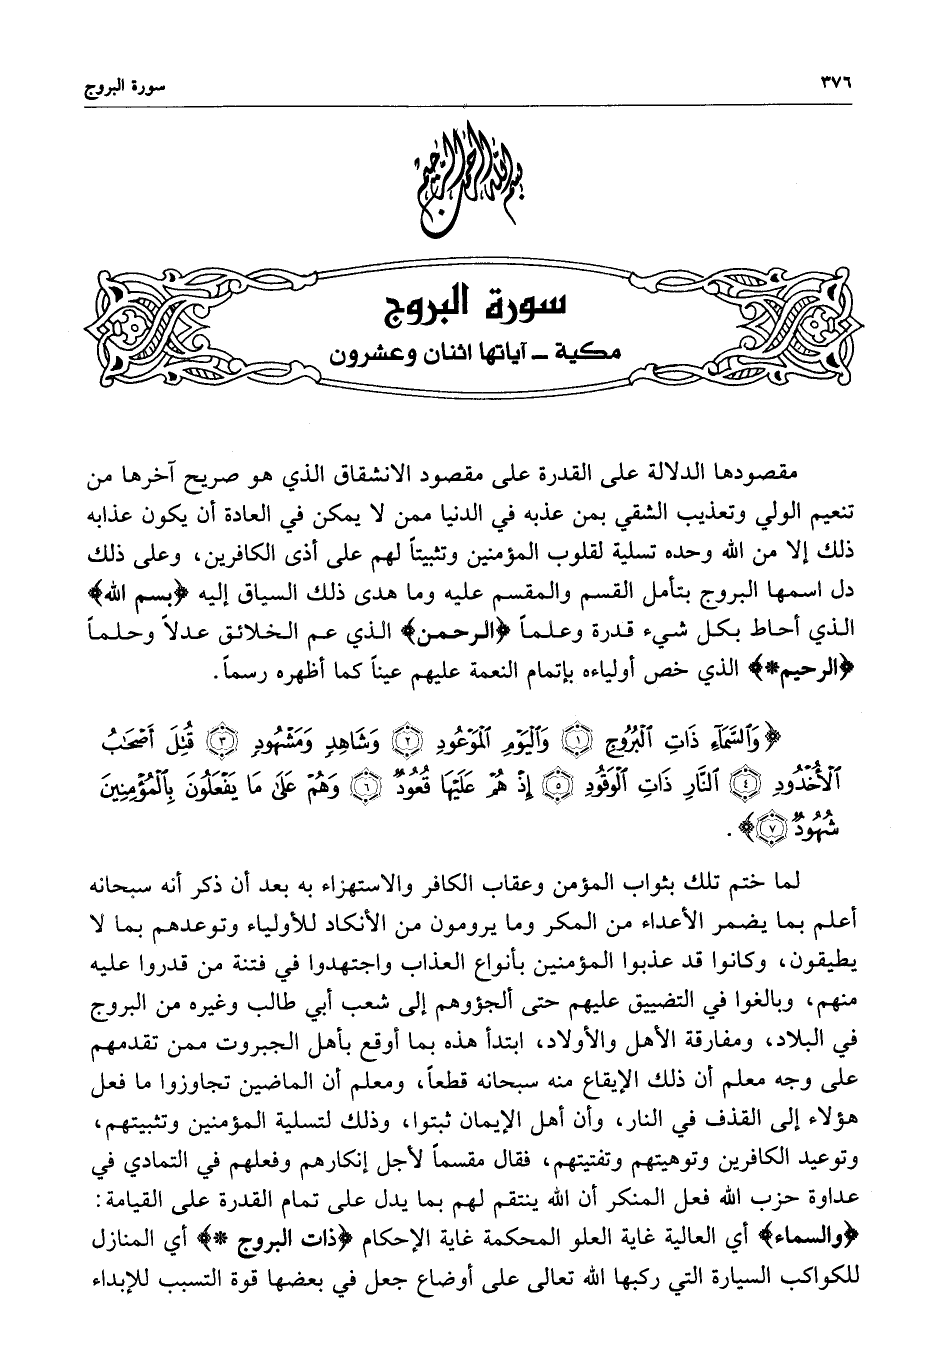 ٣٧٦ سورة البروج
بسم الله الرحمن الرحيم
سورة البروج
مكية ــ آياتها اثنان وعشرون
مقصودها الدلالة على القدرة على مقصود الانشقاق الذي هو صريح آخرها من
تنعيم الولي وتعذيب الشقي بمن عذبه في الدنيا ممن لا يمكن في العادة أن يكون عذابه
ذلك إلا من الله وحده تسلية لقلوب المؤمنين وتثبيتاً لهم على أذى الكافرين، وعلى ذلك
دل اسمها البروج بتأمل القسم والمقسم عليه وما هدى ذلك السياق إليه ﴿بسم الله﴾
الذي أحاط بكل شيء قدرة وعلماً ﴿الرحمن﴾ الذي عم الخلائق عدلاً وحلماً
﴿الرحيم*﴾ الذي خص أولياءه بإتمام النعمة عليهم عيناً كما أظهره رسماً.
﴿وَٱلسَّمَآءِ ذَاتِ ٱلْبُرُوجِ ۝١ وَٱلْيَوْمِ ٱلْمَوْعُودِ ۝٢ وَشَاهِدٍ وَمَشْهُودٍ ۝٣ قُتِلَ أَصْحَٰبُ
ٱلْأُخْدُودِ ۝٤ ٱلنَّارِ ذَاتِ ٱلْوَقُودِ ۝٥ إِذْ هُمْ عَلَيْهَا قُعُودٌ ۝٦ وَهُمْ عَلَىٰ مَا يَفْعَلُونَ بِٱلْمُؤْمِنِينَ
شُهُودٌ ۝٧﴾.
لما ختم تلك بثواب المؤمن وعقاب الكافر والاستهزاء به بعد أن ذكر أنه سبحانه
أعلم بما يضمر الأعداء من المكر وما يرومون من الأنكاد للأولياء وتوعدهم بما لا
يطيقون، وكانوا قد عذبوا المؤمنين بأنواع العذاب واجتهدوا في فتنة من قدروا عليه
منهم، وبالغوا في التضييق عليهم حتى ألجؤوهم إلى شعب أبي طالب وغيره من البروج
في البلاد، ومفارقة الأهل والأولاد، ابتدأ هذه بما أوقع بأهل الجبروت ممن تقدمهم
على وجه معلم أن ذلك الإيقاع منه سبحانه قطعاً، ومعلم أن الماضين تجاوزوا ما فعل
هؤلاء إلى القذف في النار، وأن أهل الإيمان ثبتوا، وذلك لتسلية المؤمنين وتثبيتهم،
وتوعيد الكافرين وتوهيتهم وتفتيتهم، فقال مقسماً لأجل إنكارهم وفعلهم في التمادي في
عداوة حزب الله فعل المنكر أن الله ينتقم لهم بما يدل على تمام القدرة على القيامة:
﴿والسماء﴾ أي العالية غاية العلو المحكمة غاية الإحكام ﴿ذات البروج *﴾ أي المنازل
للكواكب السيارة التي ركبها الله تعالى على أوضاع جعل في بعضها قوة التسبب للإبداء